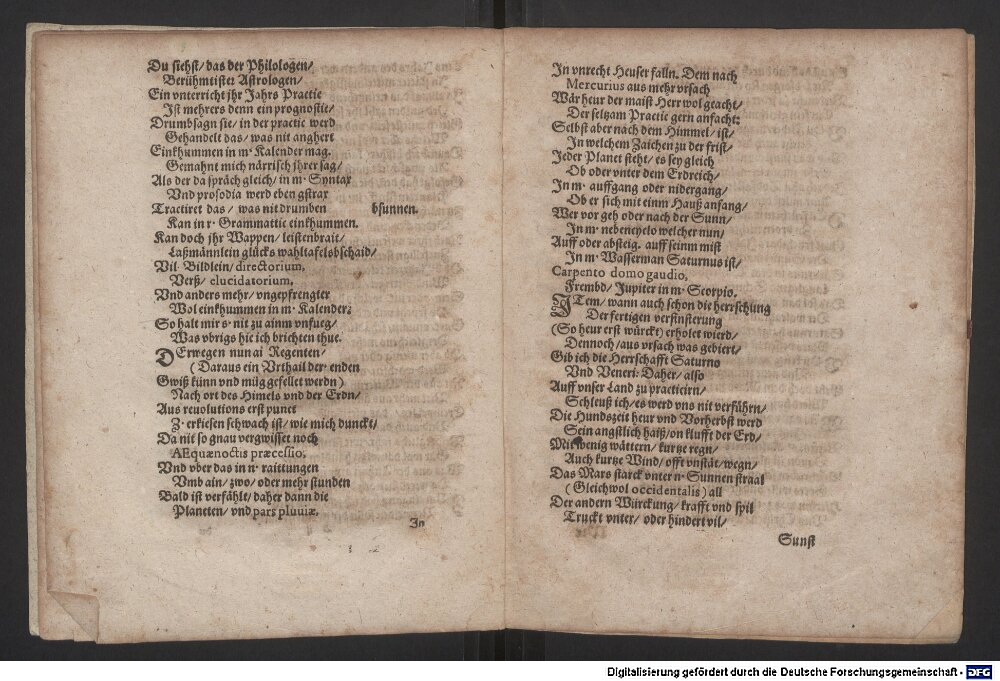 Du siehst/ das der Philologen/
Berühmtister Astrologen/
Ein vnterricht jhr Jahrs Practic
Ist mehrers denn ein prognostic/
Drumbsagn sie/ in der practic werd
Gehandelt das/ was nit anghert
Einkhummen in m· Kalender mag.
Gemahnt mich närrisch jhrer sag/
Als der da spräch gleich/ in m· Syntax
Vnd prosodia werd eben gstrax
Tractiret das/ was nit drumben bsunnen.
Kan in r· Grammattic einkhummen.
Kan doch jhr Wappen/ leistenbrait/
Laßmännlein glücks wahltafelsbschaid/
Vil Bildlein/ directorium,
Verß/ elucidatorium,
Vnd anders mehr/ vngepfrengter
Wol einkhummen in m· Kalender:
So halt mir s· nit zu ainm vnfueg/
Was vbrigs hie ich brichten thue.
DErwegen nun ai Regenten/
(Daraus ein Vrthail der· enden
Gwiß künn vnd müg gefellet werdn)
Nach ort des Himels vnd der Erdn/
Aus reuolutions erst punct
Z· erkiesen schwach ist/ wie mich dunckt/
Da nit so gnau vergwisset noch
AEquænoctis præcessio,
Vnd vber das in n· raittungen
Vmb ain/ zwo/ oder mehr stunden
Bald ist verfählt/ daher dann die
Planeten/ vnd pars pluuiæ,
In
In vnrecht Heuser falln. Dem nach
Mercurius aus mehr vrsach
Wär heur der maist Herr wol geacht/
Der seltzam Practic gern anfacht:
Selbst aber nach dem Himmel/ ist/
In welchem Zaichen zu der frist/
Jeder Planet steht/ es sey gleich
Ob oder vnter dem Erdreich/
In m· auffgang oder nidergang/
Ob er sich mit einm Hauß anfang/
Wer vor geh oder nach der Sunn/
In m· nebencyclo welcher nun/
Auff oder absteig· auff seinm mist
In m· Wasserman Saturnus ist/
Carpento domo gaudio,
Frembd/ Jupiter in m· Scorpio.
ITem/ wann auch schon die herrschung
Der fertigen versinsterung
(So heur erst würckt) erholet wierd/
Dennoch/ aus vrsach was gebiert/
Gib ich die Herrschafft Saturno
Vnd Veneri: Daher/ also
Auff vnser Land zu practicirn/
Schleuß ich/ es werd vns nit verführn/
Die Hundszeit heur vnd Vorherbst werd
Sein angstlich haiß/ on klufft der Erd/
Mit wenig wättern/ kurtze regn/
Auch kurtze Wind/ offt vnstät/ wegn/
Das Mars starck vnter n· Sunnen straal
(Gleichwol occidentalis) all
Der andern Würckung/ krafft vnd spil
Truckt vnter/ oder hindert vil/
Sunst
Digitalisierung gefördert durch die Deutsche Forschungsgemeinschaft - DFG